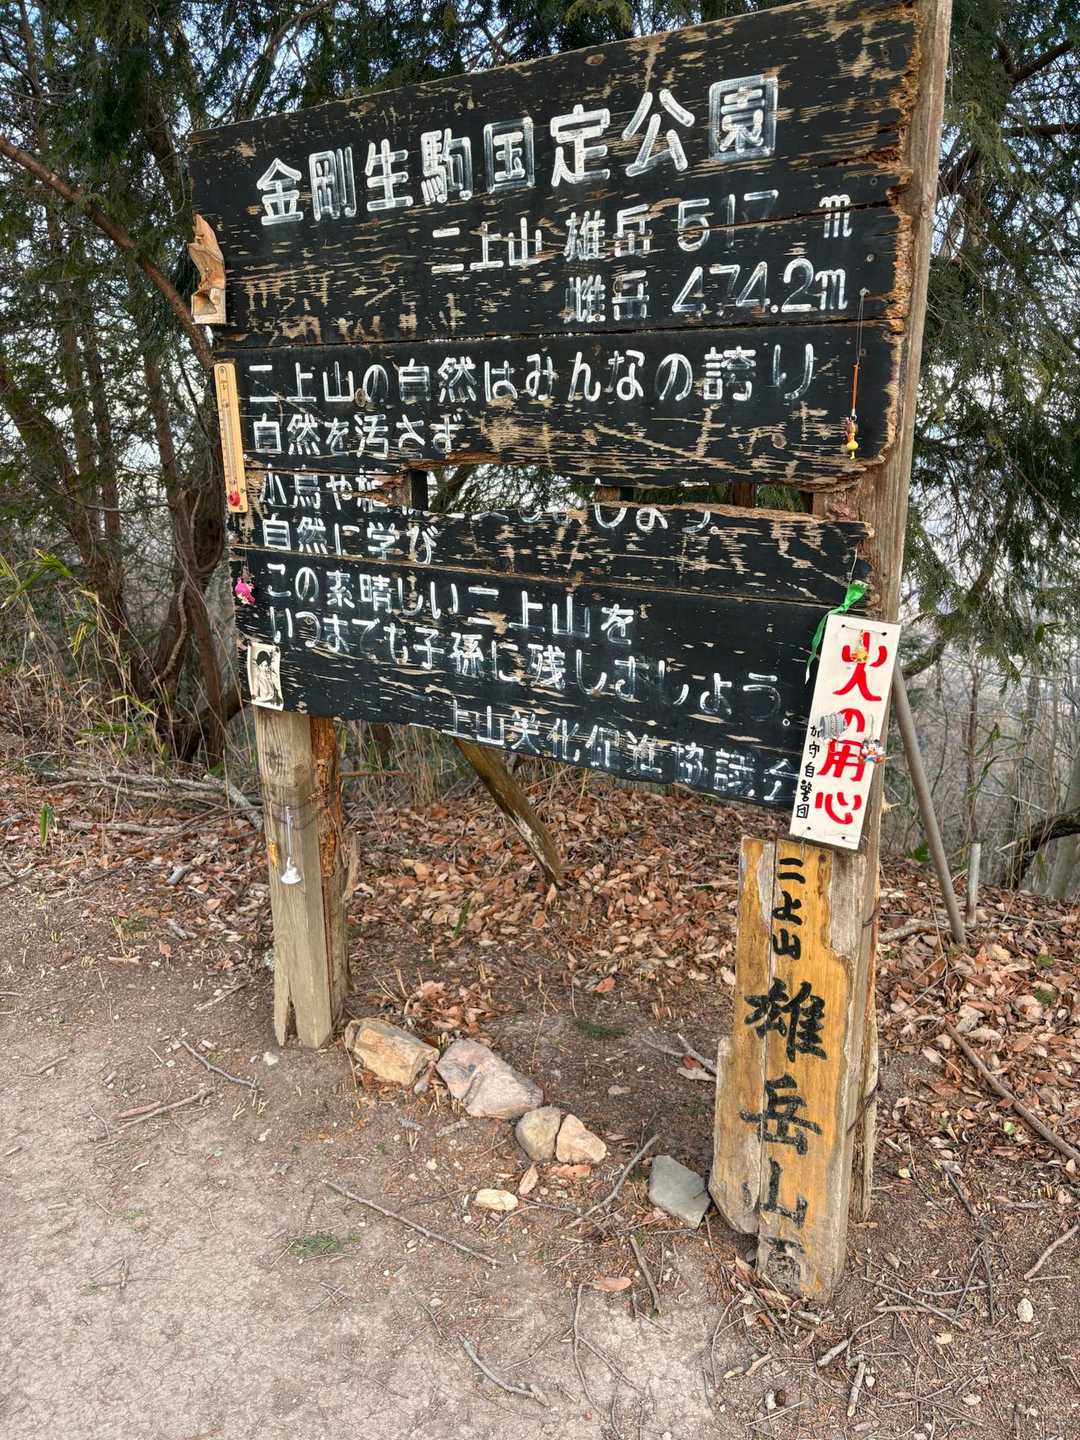 金剛生駒国定公園
二上山 雄岳 517 m
雌岳 474.2m
二上山の自然はみんなの誇り
自然を汚さず
小鳥や
しましょう。
自然に学び
この素晴しい二上山を
いつまでも子孫に残しましょう。
上山美化促進協議会
火の用心
加守自警団
二上山
雄岳山